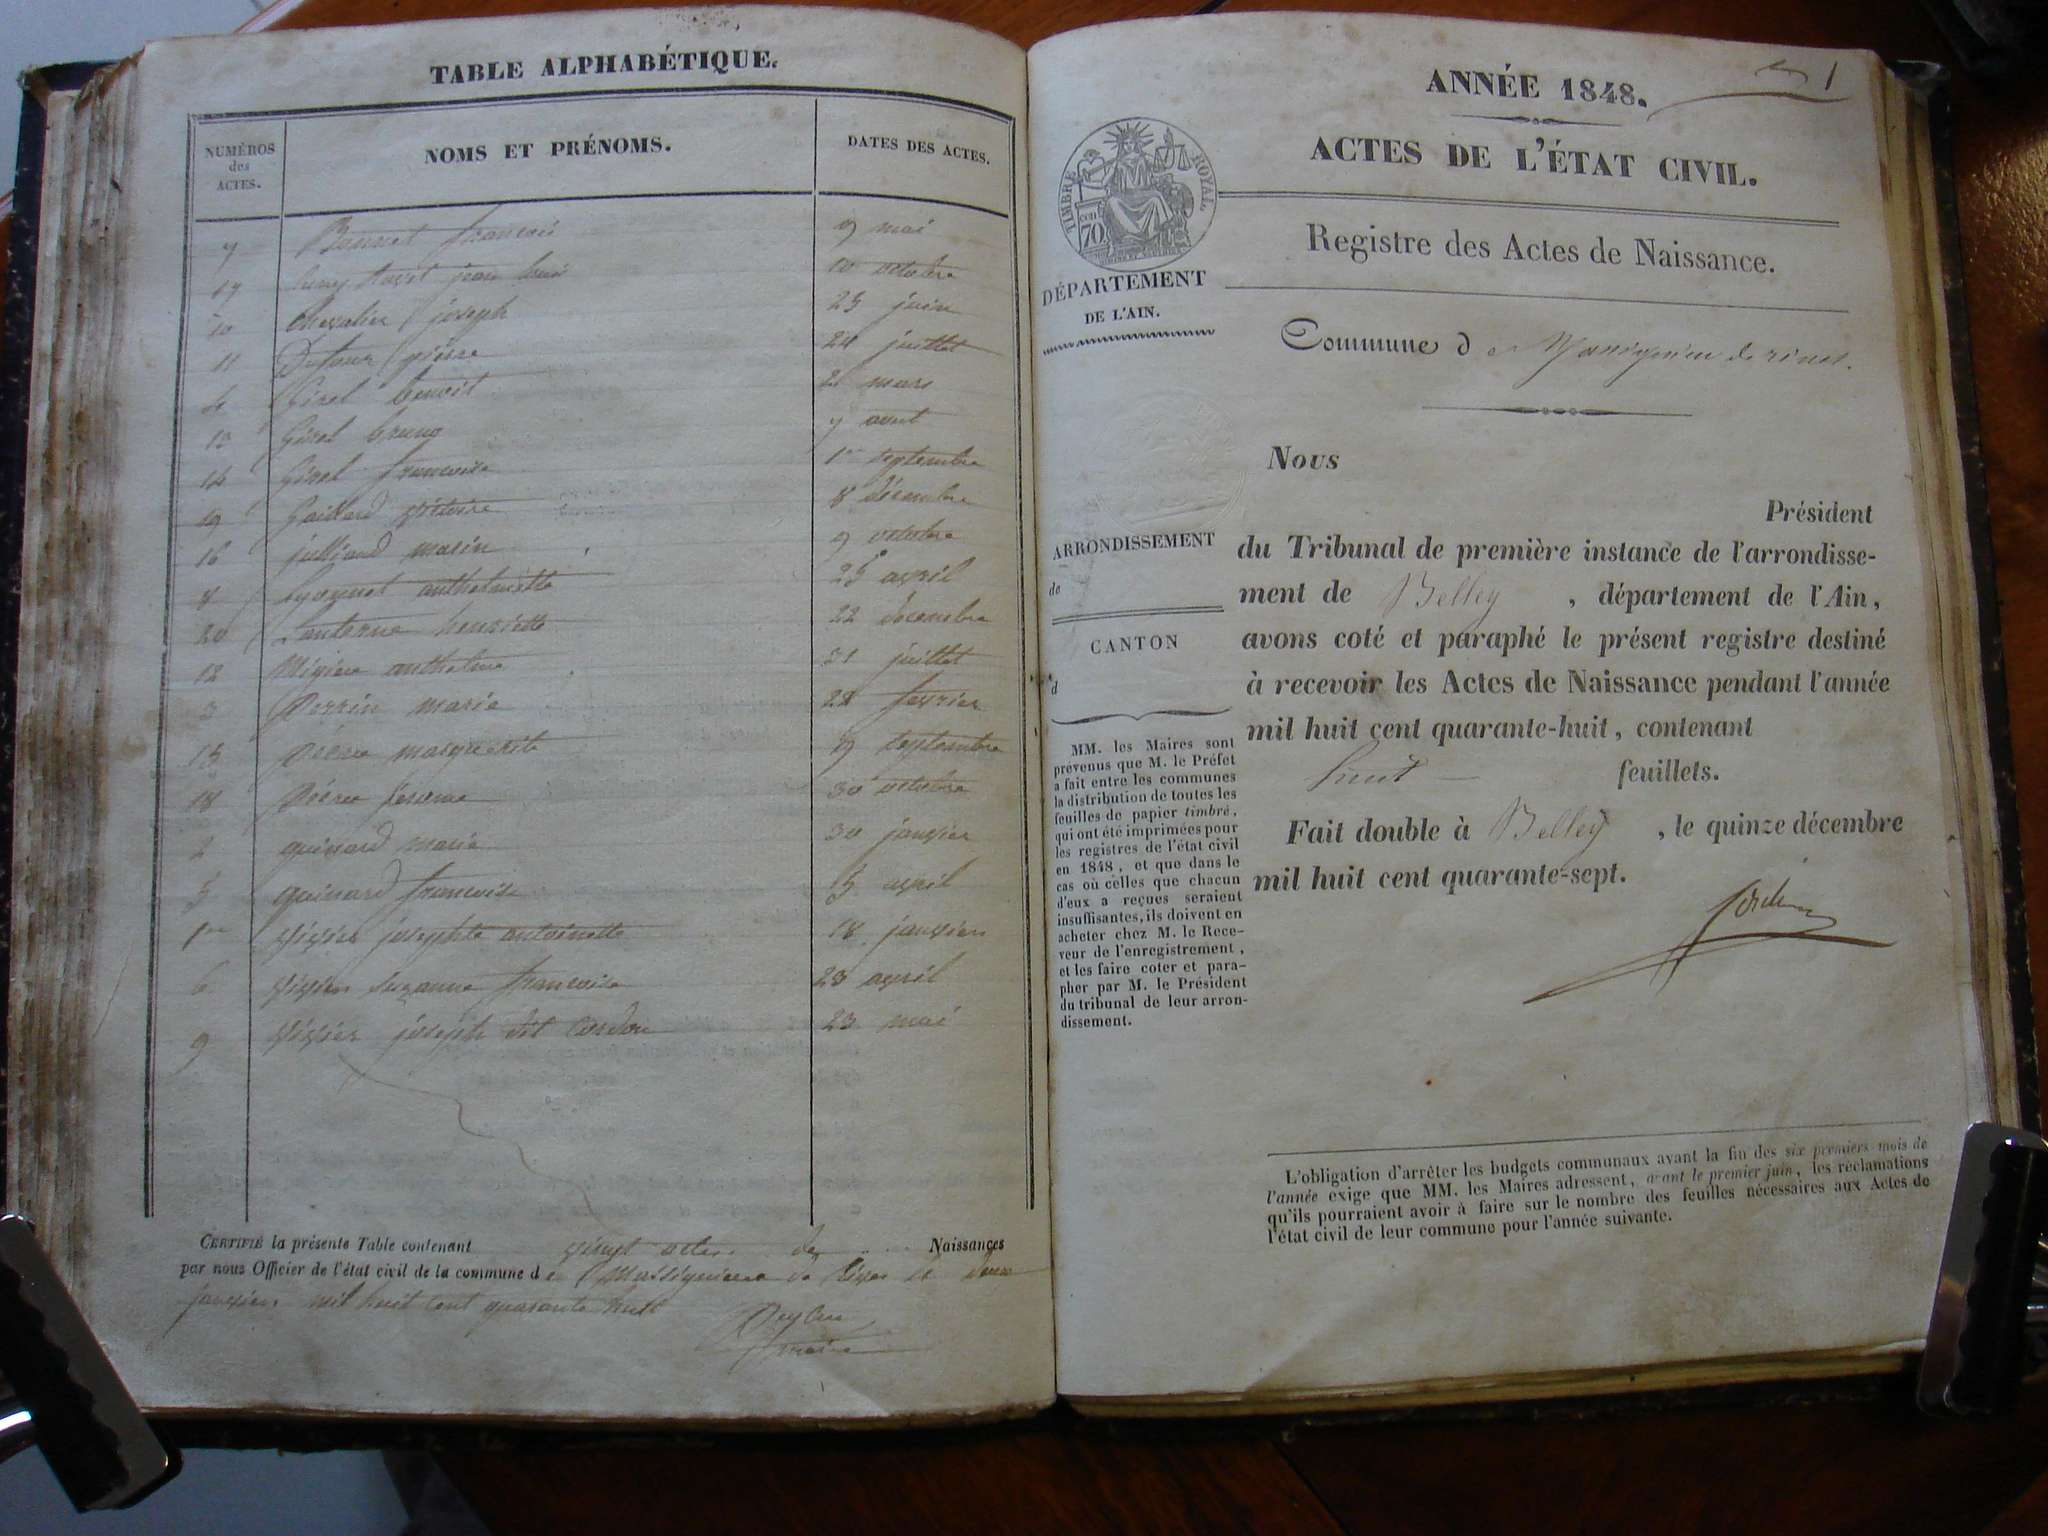 TABLE ALPHABÉTIQUE.
NUMÉROS des ACTES.
NOMS ET PRÉNOMS.
DATES DES ACTES.
7 Bonnet françois 9 mai
17 jean louis 10 octobre
10 Chevalier joseph 25 juin
11 Dufour pierre 24 juillet
4 Girel benoit 2 mars
13 Girel bruno 7 aout
14 Girel francoise 1er septembre
19 Gaillard 8 décembre
16 julliand marin 9 octobre
8 anthelmette 25 avril
20 Lanterne henriette 22 decembre
12 Migieu anthelme 31 juillet
3 Perrin marie 28 fevrier
15 marguerite 9 septembre
18 30 octobre
2 quinard marie 30 janvier
5 quinard francoise 5 avril
1er vivier josephte antoinette 18 janvier
6 vivier suzanne francoise 23 avril
9 vivier joseph dit 23 mai
CERTIFIÉ la présente Table contenant vingt actes de Naissances
par nous Officier de l'état civil de la commune de Massignieu de Rives le deux
janvier mil huit cent quarante huit
maire
1
ANNÉE 1848.
ACTES DE L'ÉTAT CIVIL.
TIMBRE ROYAL
cen 70
Registre des Actes de Naissance.
DÉPARTEMENT
DE L'AIN.
Commune de Massignieu de rives.
Nous
Président
du Tribunal de première instance de l'arrondisse-
ment de Belley, département de l'Ain,
avons coté et paraphé le présent registre destiné
à recevoir les Actes de Naissance pendant l'année
mil huit cent quarante-huit, contenant
huit feuillets.
Fait double à Belley, le quinze décembre
mil huit cent quarante-sept.
ARRONDISSEMENT
de
CANTON
d
MM. les Maires sont
prévenus que M. le Préfet
a fait entre les communes
la distribution de toutes les
feuilles de papier timbré,
qui ont été imprimées pour
les registres de l'état civil
en 1848, et que dans le
cas où celles que chacun
d'eux a reçues seraient
insuffisantes, ils doivent en
acheter chez M. le Rece-
veur de l'enregistrement,
et les faire coter et para-
pher par M. le Président
du tribunal de leur arron-
dissement.
L'obligation d'arrêter les budgets communaux avant la fin des six premiers mois de
l'année exige que MM. les Maires adressent, avant le premier juin, les réclamations
qu'ils pourraient avoir à faire sur le nombre des feuilles nécessaires aux Actes de
l'état civil de leur commune pour l'année suivante.